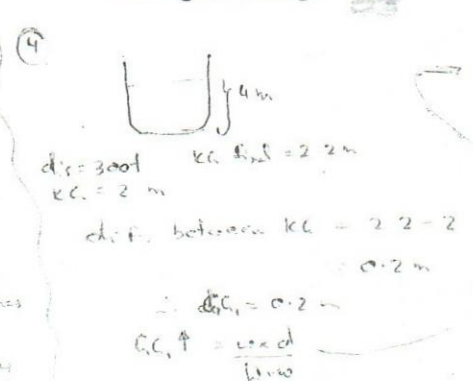 4
4 m
dis = 300t KG final = 2.2 m
KG = 2 m
diff. between KG = 2.2 - 2
= 0.2 m
∴ GG₁ = 0.2 m
GG₁ ↑ = w×d
W-w